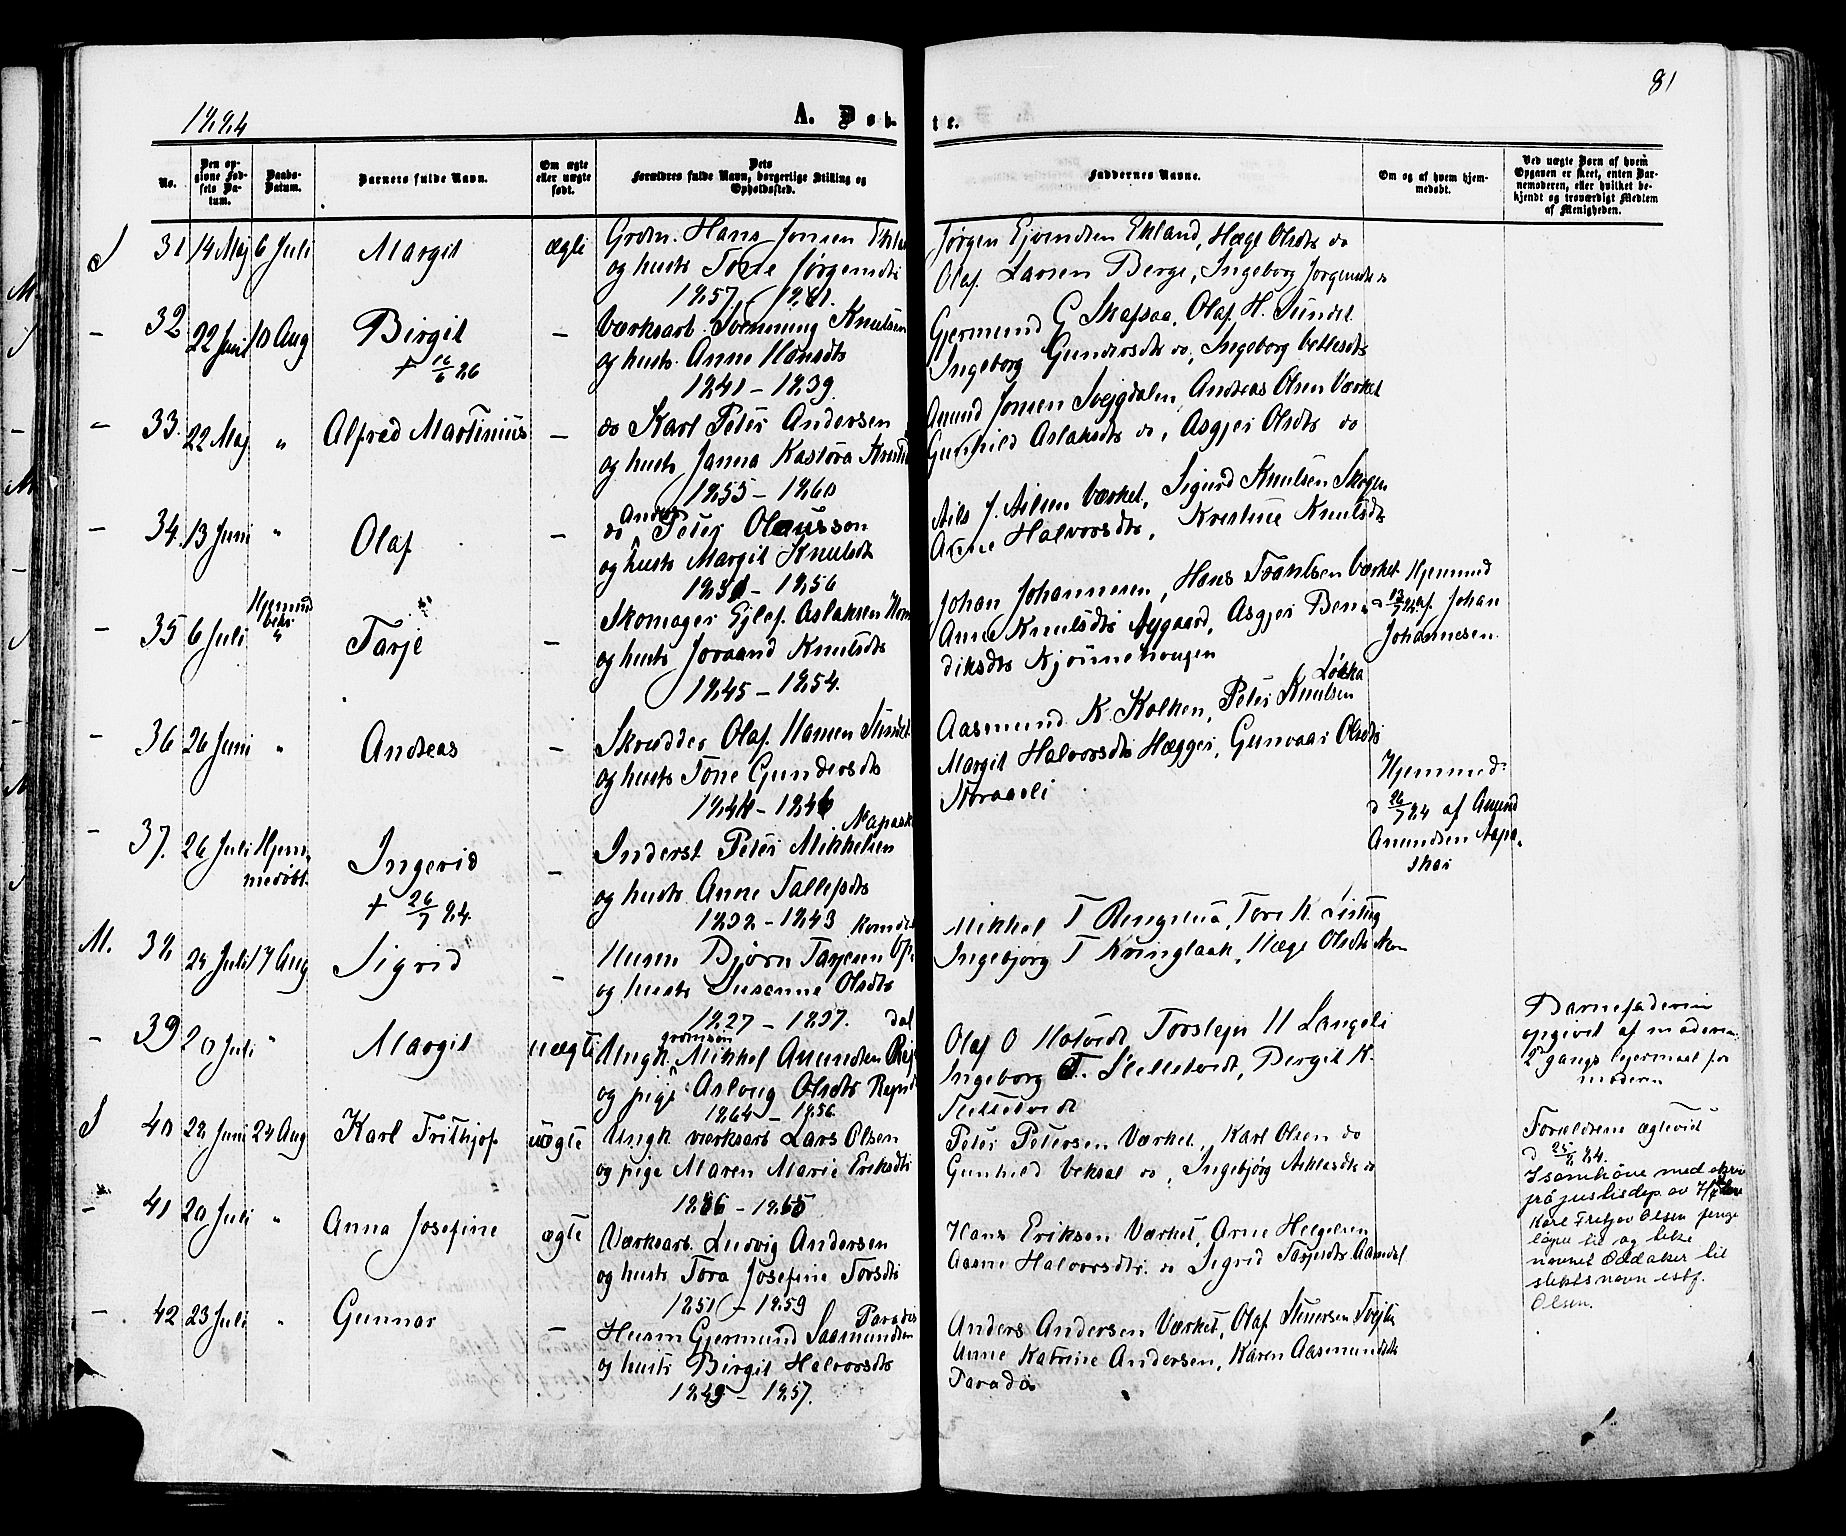 81
1884
A. Døbte.
No.
Den opgivne Fødsels Datum.
Daabs-Datum.
Barnets fulde Navn.
Om ægte eller uægte født.
Dets Forældres fulde Navn, borgerlige Stilling og Opholdssted.
Faddernes Navne.
Om og af hvem hjemmedøbt.
Ved uægte Børn af hvem Opgaven er skeet, enten Barnemoderen, eller hvilket bekjendt og troværdigt Medlem af Menigheden.
S 31 14 Maj 6 Juli Margit ægte Grdm. Hans Jonsen
og hustr Tone Jørgensdtr
1857 - 1861.
Jørgen Ejvindsen Ekland, Hæge Olsdtr do
Olaf Larsen Berge, Ingeborg Jørgensdtr
– 32 22 Juni 10 Aug Birgit – Værksarb. Knutsen
+ 16/6 86
og hustr. Anne Hansdtr
1841 - 1839.
Gjermund G Skafsaa, Olaf H. Sundet
Ingeborg Gundersdtr do, Ingeborg
– 33. 22 Maj " Alfred Martinius – do Karl Peter Andersen
og hustr Janna
1855 - 1860
Amund Jonsen Svejgdalen, Andreas Olsen Værket
Gunhild Aslaksdtr do, Asgjer Olsdtr do
– 34. 13 Juni " Olaf – do Peter Olausson
og hustr Margit Knutsdtr
- 1856
Nils J. Nilsen Værket, Sigurd Knutsen
Anne Halvorsdtr, Kristine Knutsdtr
– 35 6 Juli Hjemmed Tarje – Skomager Ejlef Aslaksen
og hustr Joraand Knutsdtr
1845 - 1854.
Johan Johannesen, Hans Værket
Anne Knutsdtr Nygaard, Asgjer Bendiksdtr
Hjemmed
13/7 84 af Johan
Johannesen
– 36 26 Juni " Andreas – Skrædder Olaf Hansen Sundet
og hustr Tone Gundersdtr
1844 - 1846
Løkka
Aasmund K Kolken, Peter Knutsen
Margit Halvorsdtr Hægger, Gunvaar Olsdtr
Storaasli
– 37. 26 Juli Hjemmedøbt. Ingerid – Inderst Peter Mikkelsen
+ 26/7 84.
og hustr Anne Tallefsdtr
1832 - 1843
Hjemmed
d 26/7 84 af Amund
Amundsen
M. 38 24 Juli 17 Aug Sigrid – Husm Bjørn
og hustr Susanne Olsdtr
1827 - 1837.
Mikkel T Ringelua, Tore K.
Ingebjørg T Kringlaak, Hæge Olsdtr
– 39 20 Juli " Margit uægte Ungk. Mikkel Amundsen
og pige Aslaug Olsdtr
1864 - 1856
Olaf O Hotvedt Torstejn H Langeli
Ingeborg T. Sletletvedt, Bergit K.
Sletletvedt
Barnefaderen
opgivet af moderen.
2 gangs lejermaal for
moderen
S 40 22 Juni 24 Aug Karl Frithjof uægte Ungk. værksarb Lars Olsen
og pige Maren Marie Eriksdtr
- 1865
Peter Petersen Værket, Karl Olsen do
Gunhild do, Ingebjørg
Forældrene ægteviet
d 25/ 84.
I samhøve med skriv
frå justisdep. av
Karl Fritjov Olsen fenge
løyve til og take
namnet Oddaker til
slektsnavn istf.
Olsen.
– 41 20 Juli " Anna Josefine ægte Værksarb. Ludvig Andersen
og hustr Tora Josefine Torsdtr
1851 - 1859
Hans Eriksen Værket, Arne Helgesen
Aasne Halvorsdtr do Sigrid Tarjeisdtr Aamdal
– 42 23 Juli " Gunnar – Husm Gjermund Saamundsen
og hustr Birgit Halvorsdtr
1849 - 1857.
Anders Andersen Værket, Olaf
Anne Katrine Andersen, Karen Aasmundsdtr
Paradis